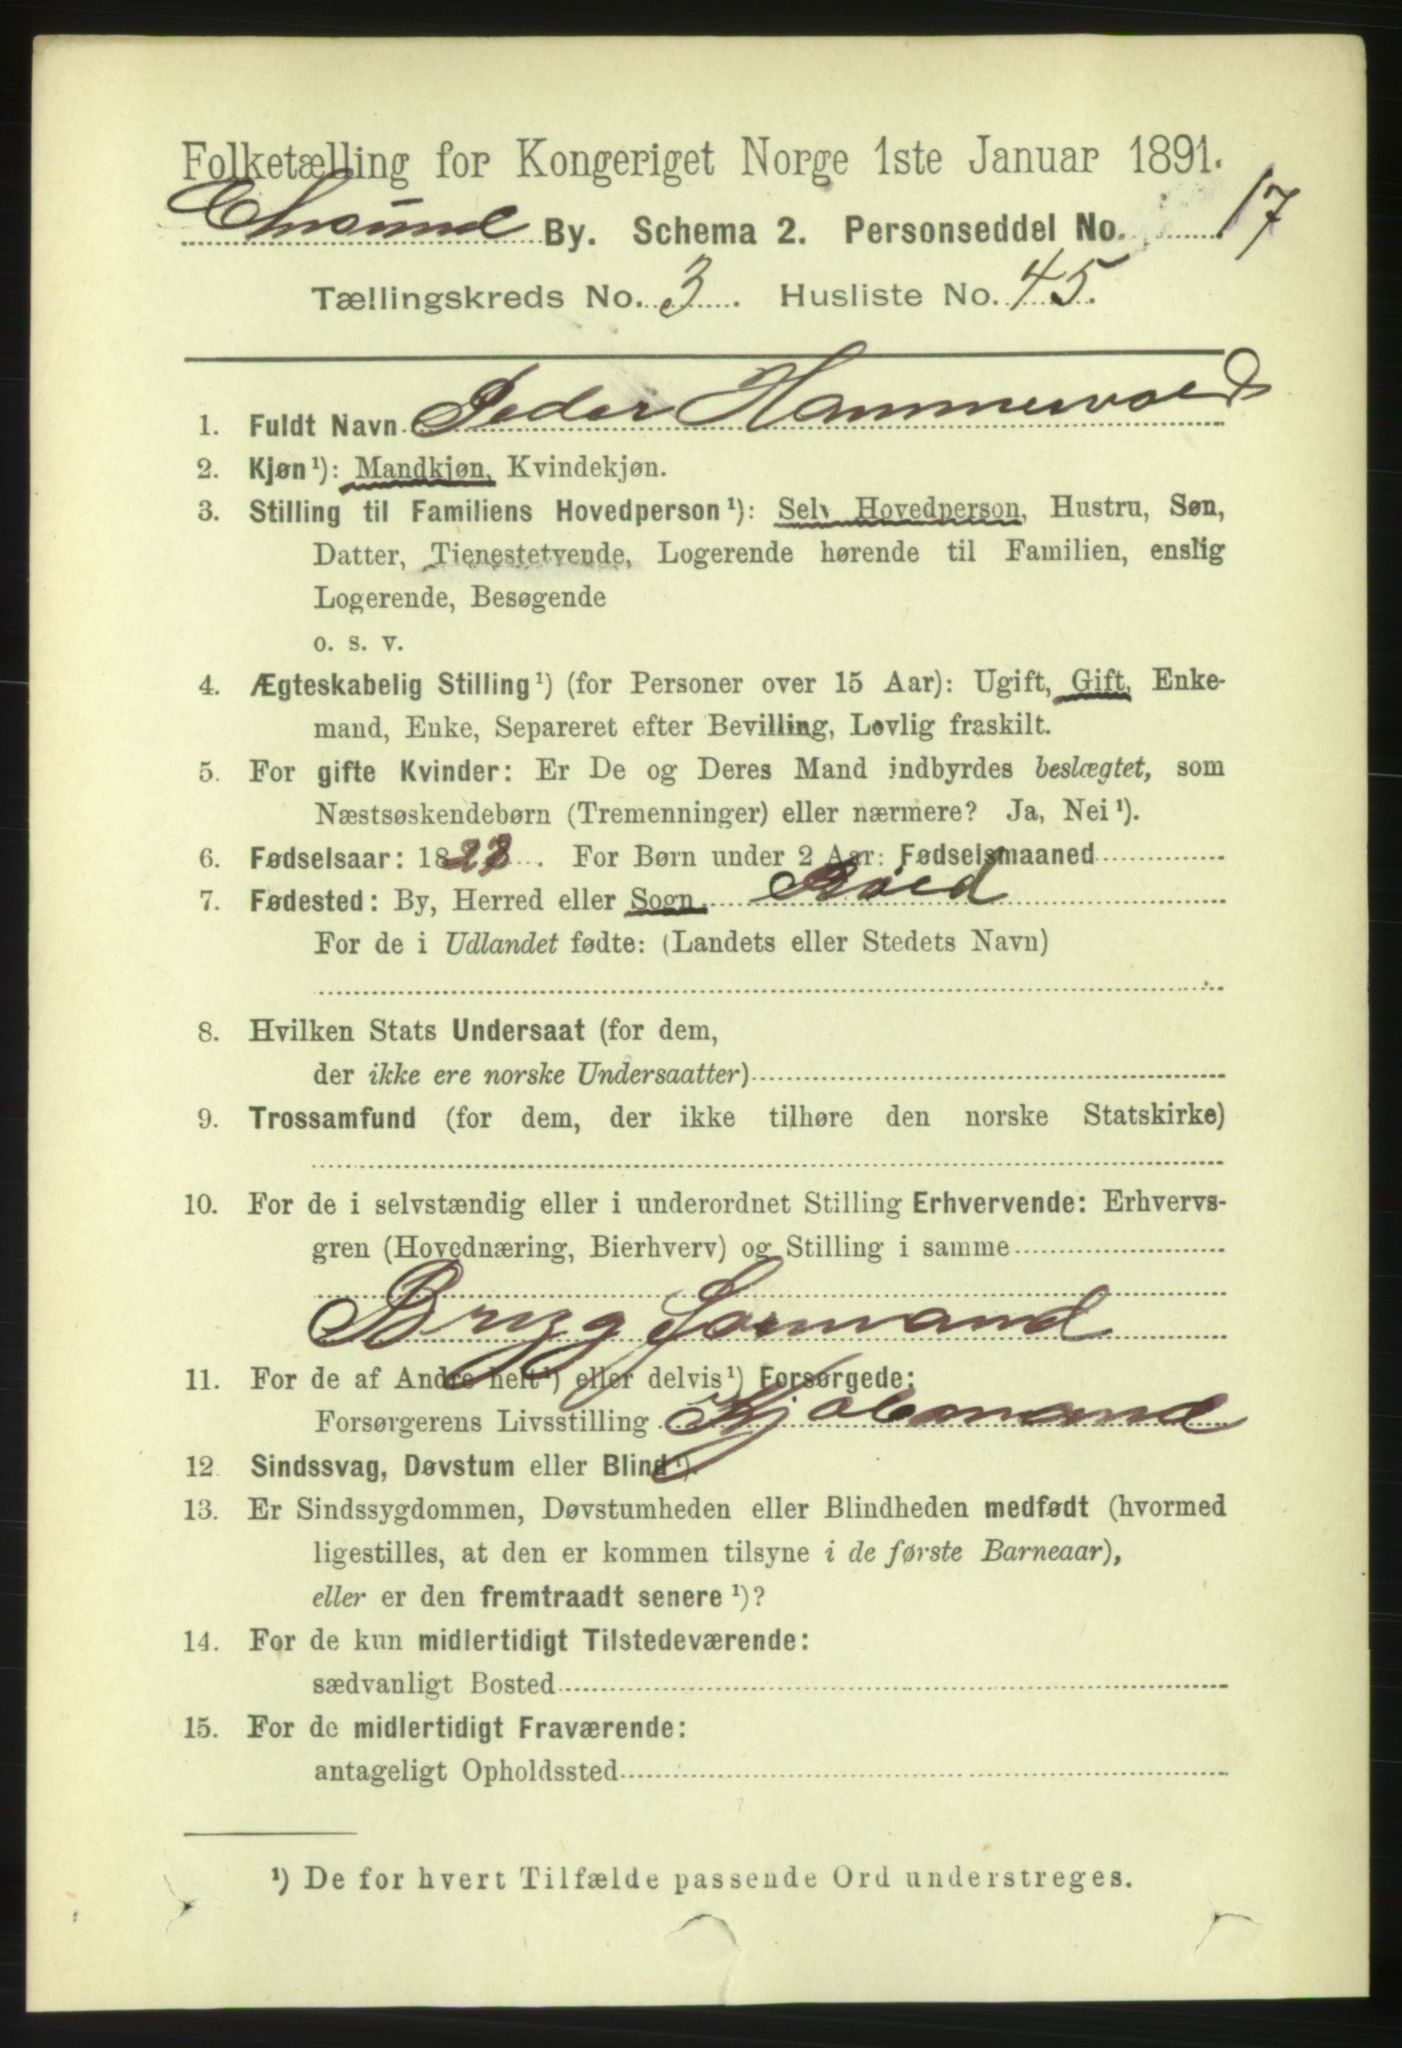 Folketælling for Kongeriget Norge 1ste Januar 1891.
Chrsund By. Schema 2. Personseddel No. 17
Tællingskreds No. 3. Husliste No. 45.
1. Fuldt Navn Peder Hammervold
2. Kjøn¹): Mandkjøn, Kvindekjøn.
3. Stilling til Familiens Hovedperson¹): Selv Hovedperson, Hustru, Søn,
Datter, Tjenestetyende, Logerende hørende til Familien, enslig
Logerende, Besøgende
o. s. v.
4. Ægteskabelig Stilling¹) (for Personer over 15 Aar): Ugift, Gift, Enke-
mand, Enke, Separeret efter Bevilling, Lovlig fraskilt.
5. For gifte Kvinder: Er De og Deres Mand indbyrdes beslægtet, som
Næstsøskendebørn (Tremenninger) eller nærmere? Ja, Nei¹).
6. Fødselsaar: 1828. For Børn under 2 Aar: Fødselsmaaned
7. Fødested: By, Herred eller Sogn
For de i Udlandet fødte: (Landets eller Stedets Navn)
8. Hvilken Stats Undersaat (for dem,
der ikke ere norske Undersaatter)
9. Trossamfund (for dem, der ikke tilhøre den norske Statskirke)
10. For de i selvstændig eller i underordnet Stilling Erhvervende: Erhvervs-
gren (Hovednæring, Bierhverv) og Stilling i samme
Bryggformand
11. For de af Andre helt¹) eller delvis¹) Forsørgede:
Forsørgerens Livsstilling Kjøbmand
12. Sindssvag, Døvstum eller Blind¹).
13. Er Sindssygdommen, Døvstumheden eller Blindheden medfødt (hvormed
ligestilles, at den er kommen tilsyne i de første Barneaar),
eller er den fremtraadt senere¹)?
14. For de kun midlertidigt Tilstedeværende:
sædvanligt Bosted
15. For de midlertidigt Fraværende:
antageligt Opholdssted
¹) De for hvert Tilfælde passende Ord understreges.